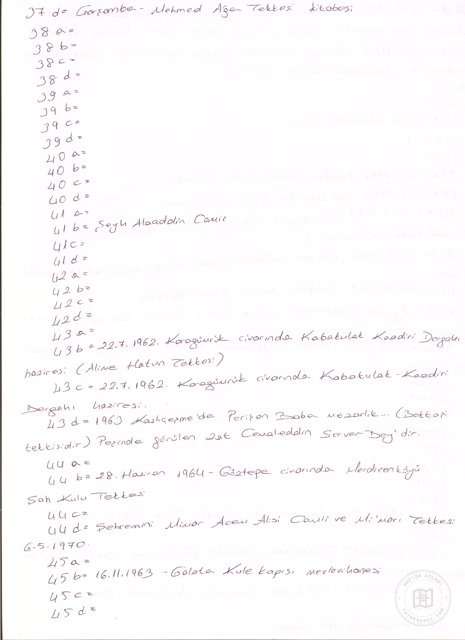 37 d= Çarşamba - Mehmed Ağa Tekkesi kitabesi
38 a=
38 b=
38 c=
38 d=
39 a=
39 b=
39 c=
39 d=
40 a=
40 b=
40 c=
40 d=
41 a=
41 b= Şeyh Alaaddin Camii
41 c=
41 d=
42 a=
42 b=
42 c=
42 d=
43 a=
43 b= 22.7.1962. Karagümrük civarında Kabakulak Kaadiri Dergahı
haziresi (Alime Hatun Tekkesi)
43 c= 22.7.1962. Karagümrük civarında Kabakulak-Kaadiri
Dergahı haziresi.
43 d= 1963 Kazlıçeşme'de Perişan Baba mezarlık... (Bektaşi
tekkesidir) Peşinde görülen zat Cemaleddin Server Bey'dir.
44 a=
44 b= 28. Haziran 1964 - Göztepe civarında Merdivenköyü
Şah Kulu Tekkesi
44 c=
44 d= Şehremini Mimar Acem Alisi Camii ve Mi'mari Tekkesi
6.5.1970.
45 a=
45 b= 16.11.1963 - Galata Kule kapısı mevlevihanesi
45 c=
45 d=